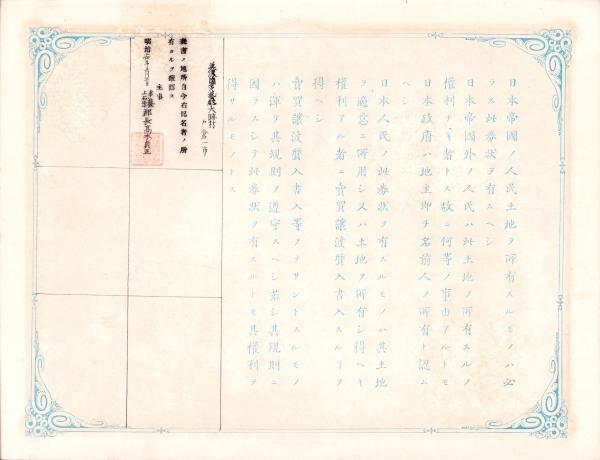 日本帝國ノ人民土地ヲ所有スルモノハ必
ラス此券狀ヲ有スヘシ
日本帝國外ノ人民ハ此土地ヲ所有スルノ
權利ナキ者トス故ニ何等ノ事由アルトモ
日本政府ハ地主即チ名前人ノ所有ト認ム
ヘシ
日本人民ノ此券狀ヲ有スルモノハ其土地
ヲ適意ニ所用シ又ハ土地ヲ所有シ得ヘキ
權利アル者ニ賣買讓渡質入書入スルヿヲ
得ヘシ
賣買讓渡質入書入等ヲナサントスルモノ
ハ渾テ其規則ヲ遵守スヘシ若シ其規則ニ
因ラスシテ此券狀ヲ有スルトモ其權利ヲ
得サルモノトス
大跡村
一市
義書ノ地所自今右記名者ノ所
有タルヲ證認ス
主事
明治年月日
郡長